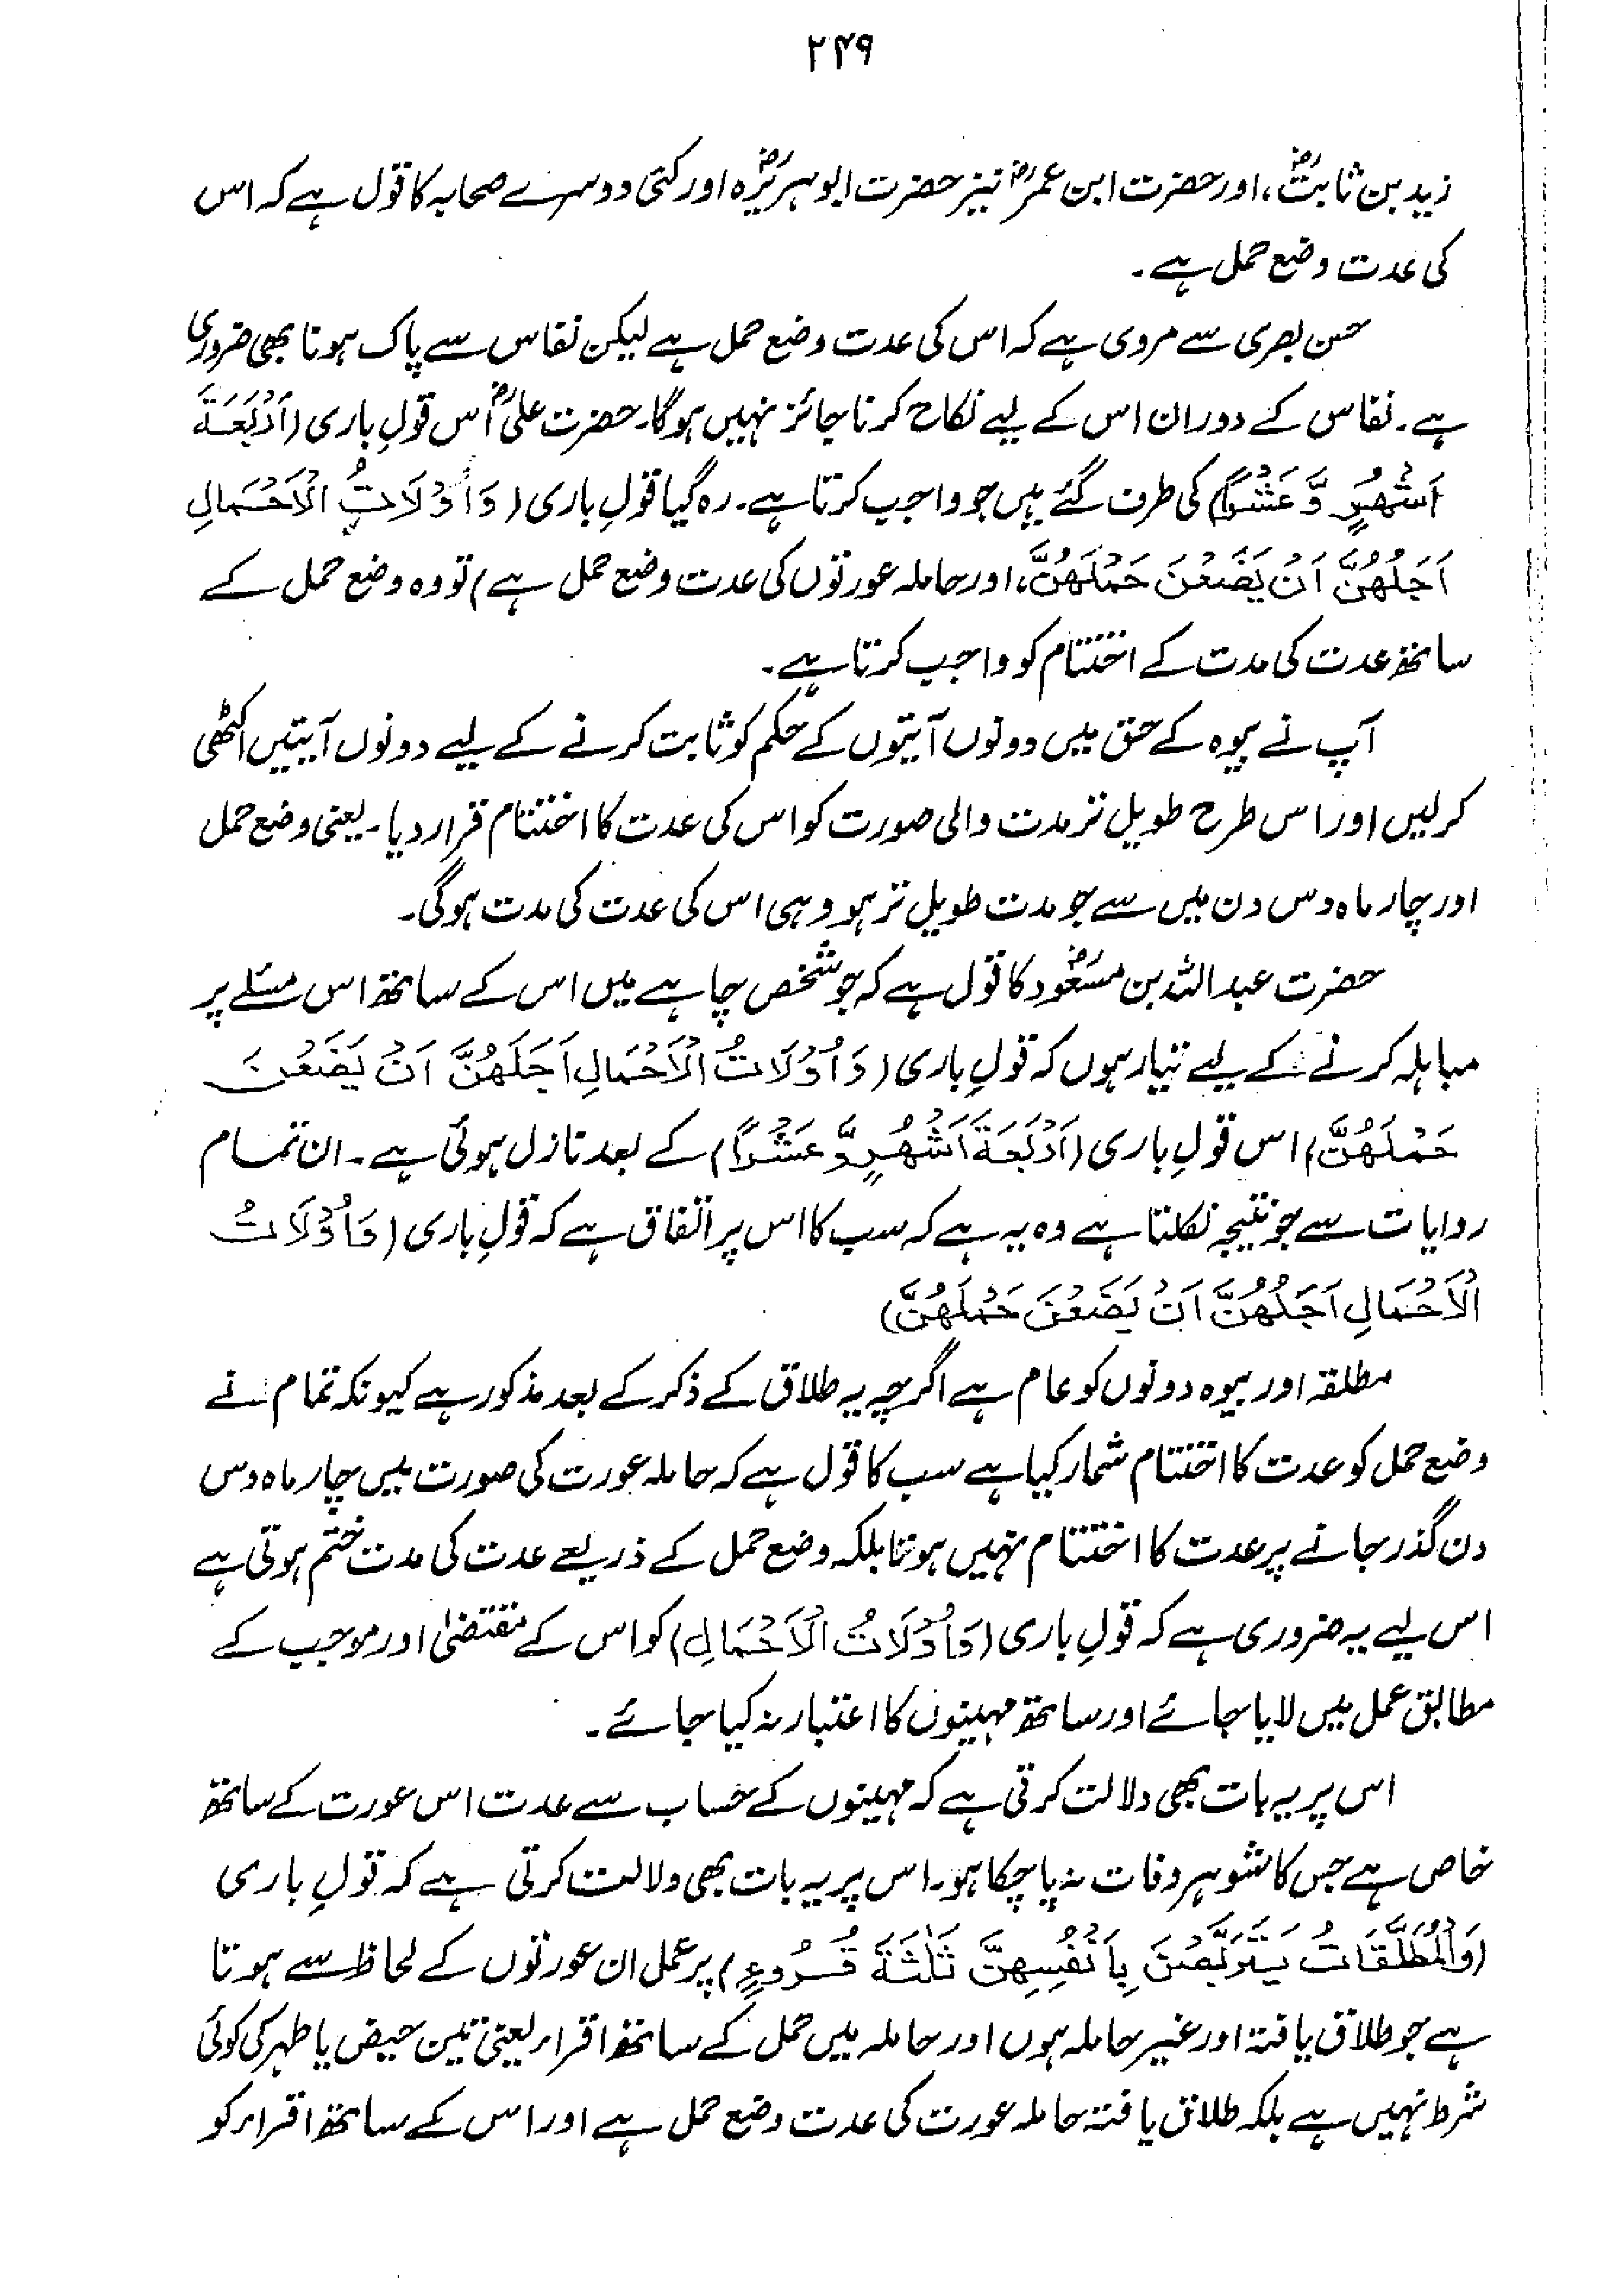 ۲۴۹
زید بن ثابتؓ، اور حضرت ابن عمرؓ نیز حضرت ابوہریرؓہ اور کئی دوسرے صحابہ کا قول ہے کہ اس
کی عدت وضع حمل ہے۔
حسن بصری سے مروی ہے کہ اس کی عدت وضع حمل ہے لیکن نفاس سے پاک ہونا بھی ضروری
ہے۔ نفاس کے دوران اس کے لیے نکاح کرنا جائز نہیں ہوگا۔ حضرت علیؓ اس قولِ باری (اَرْبَعَۃَ
اَشْھُرٍ وَّ عَشْرًا) کی طرف گئے ہیں جو واجب کرتا ہے۔ رہ گیا قولِ باری (وَاُوْلَاتُ الْاَحْمَالِ
اَجَلُھُنَّ اَنْ یَضَعْنَ حَمْلَھُنَّ، اور حاملہ عورتوں کی عدت وضع حمل ہے) تو وہ وضع حمل کے
ساتھ عدت کی مدت کے اختتام کو واجب کرتا ہے۔
آپ نے بیوہ کے حق میں دونوں آیتوں کے حکم کو ثابت کرنے کے لیے دونوں آیتیں اکٹھی
کرلیں اور اس طرح طویل تر مدت والی صورت کو اس کی عدت کا اختتام قرار دیا۔ یعنی وضع حمل
اور چار ماہ دس دن میں سے جو مدت طویل تر ہو وہی اس کی عدت کی مدت ہوگی۔
حضرت عبداللہ بن مسعوؓد کا قول ہے کہ جو شخص چاہے میں اس کے ساتھ اس مسئلے پر
مباہلہ کرنے کے لیے تیار ہوں کہ قولِ باری (وَاُوْلَاتُ الْاَحْمَالِ اَجَلُھُنَّ اَنْ یَضَعْنَ
حَمْلَھُنَّ) اس قولِ باری (اَرْبَعَۃَ اَشْھُرٍ وَّ عَشْرًا) کے بعد نازل ہوئی ہے۔ ان تمام
روایات سے جو نتیجہ نکلتا ہے وہ یہ ہے کہ سب کا اس پر اتفاق ہے کہ قولِ باری (وَاُوْلَاتُ
الْاَحْمَالِ اَجَلُھُنَّ اَنْ یَضَعْنَ حَمْلَھُنَّ)
مطلقہ اور بیوہ دونوں کو عام ہے اگرچہ یہ طلاق کے ذکر کے بعد مذکور ہے کیونکہ تمام نے
وضع حمل کو عدت کا اختتام شمار کیا ہے سب کا قول ہے کہ حاملہ عورت کی صورت میں چار ماہ دس
دن گذر جانے پر عدت کا اختتام نہیں ہوتا بلکہ وضع حمل کے ذریعے عدت کی مدت ختم ہوتی ہے
اس لیے یہ ضروری ہے کہ قولِ باری (وَاُوْلَاتُ الْاَحْمَالِ) کو اس کے مقتضیٰ اور موجب کے
مطابق عمل میں لایا جائے اور ساتھ مہینوں کا اعتبار نہ کیا جائے۔
اس پر یہ بات بھی دلالت کرتی ہے کہ مہینوں کے حساب سے عدت اس عورت کے ساتھ
خاص ہے جس کا شوہر وفات نہ پا چکا ہو۔ اس پر یہ بات بھی دلالت کرتی ہے کہ قولِ باری
(وَالْمُطَلَّقَاتُ یَتَرَبَّصْنَ بِاَنْفُسِھِنَّ ثَلٰثَۃَ قُرُوْءٍ) پر عمل ان عورتوں کے لحاظ سے ہوتا
ہے جو طلاق یافتہ اور غیر حاملہ ہوں اور حاملہ میں حمل کے ساتھ اقراء یعنی تین حیض یا طہر کی کوئی
شرط نہیں ہے بلکہ طلاق یافتہ حاملہ عورت کی عدت وضع حمل ہے اور اس کے ساتھ اقراء کو